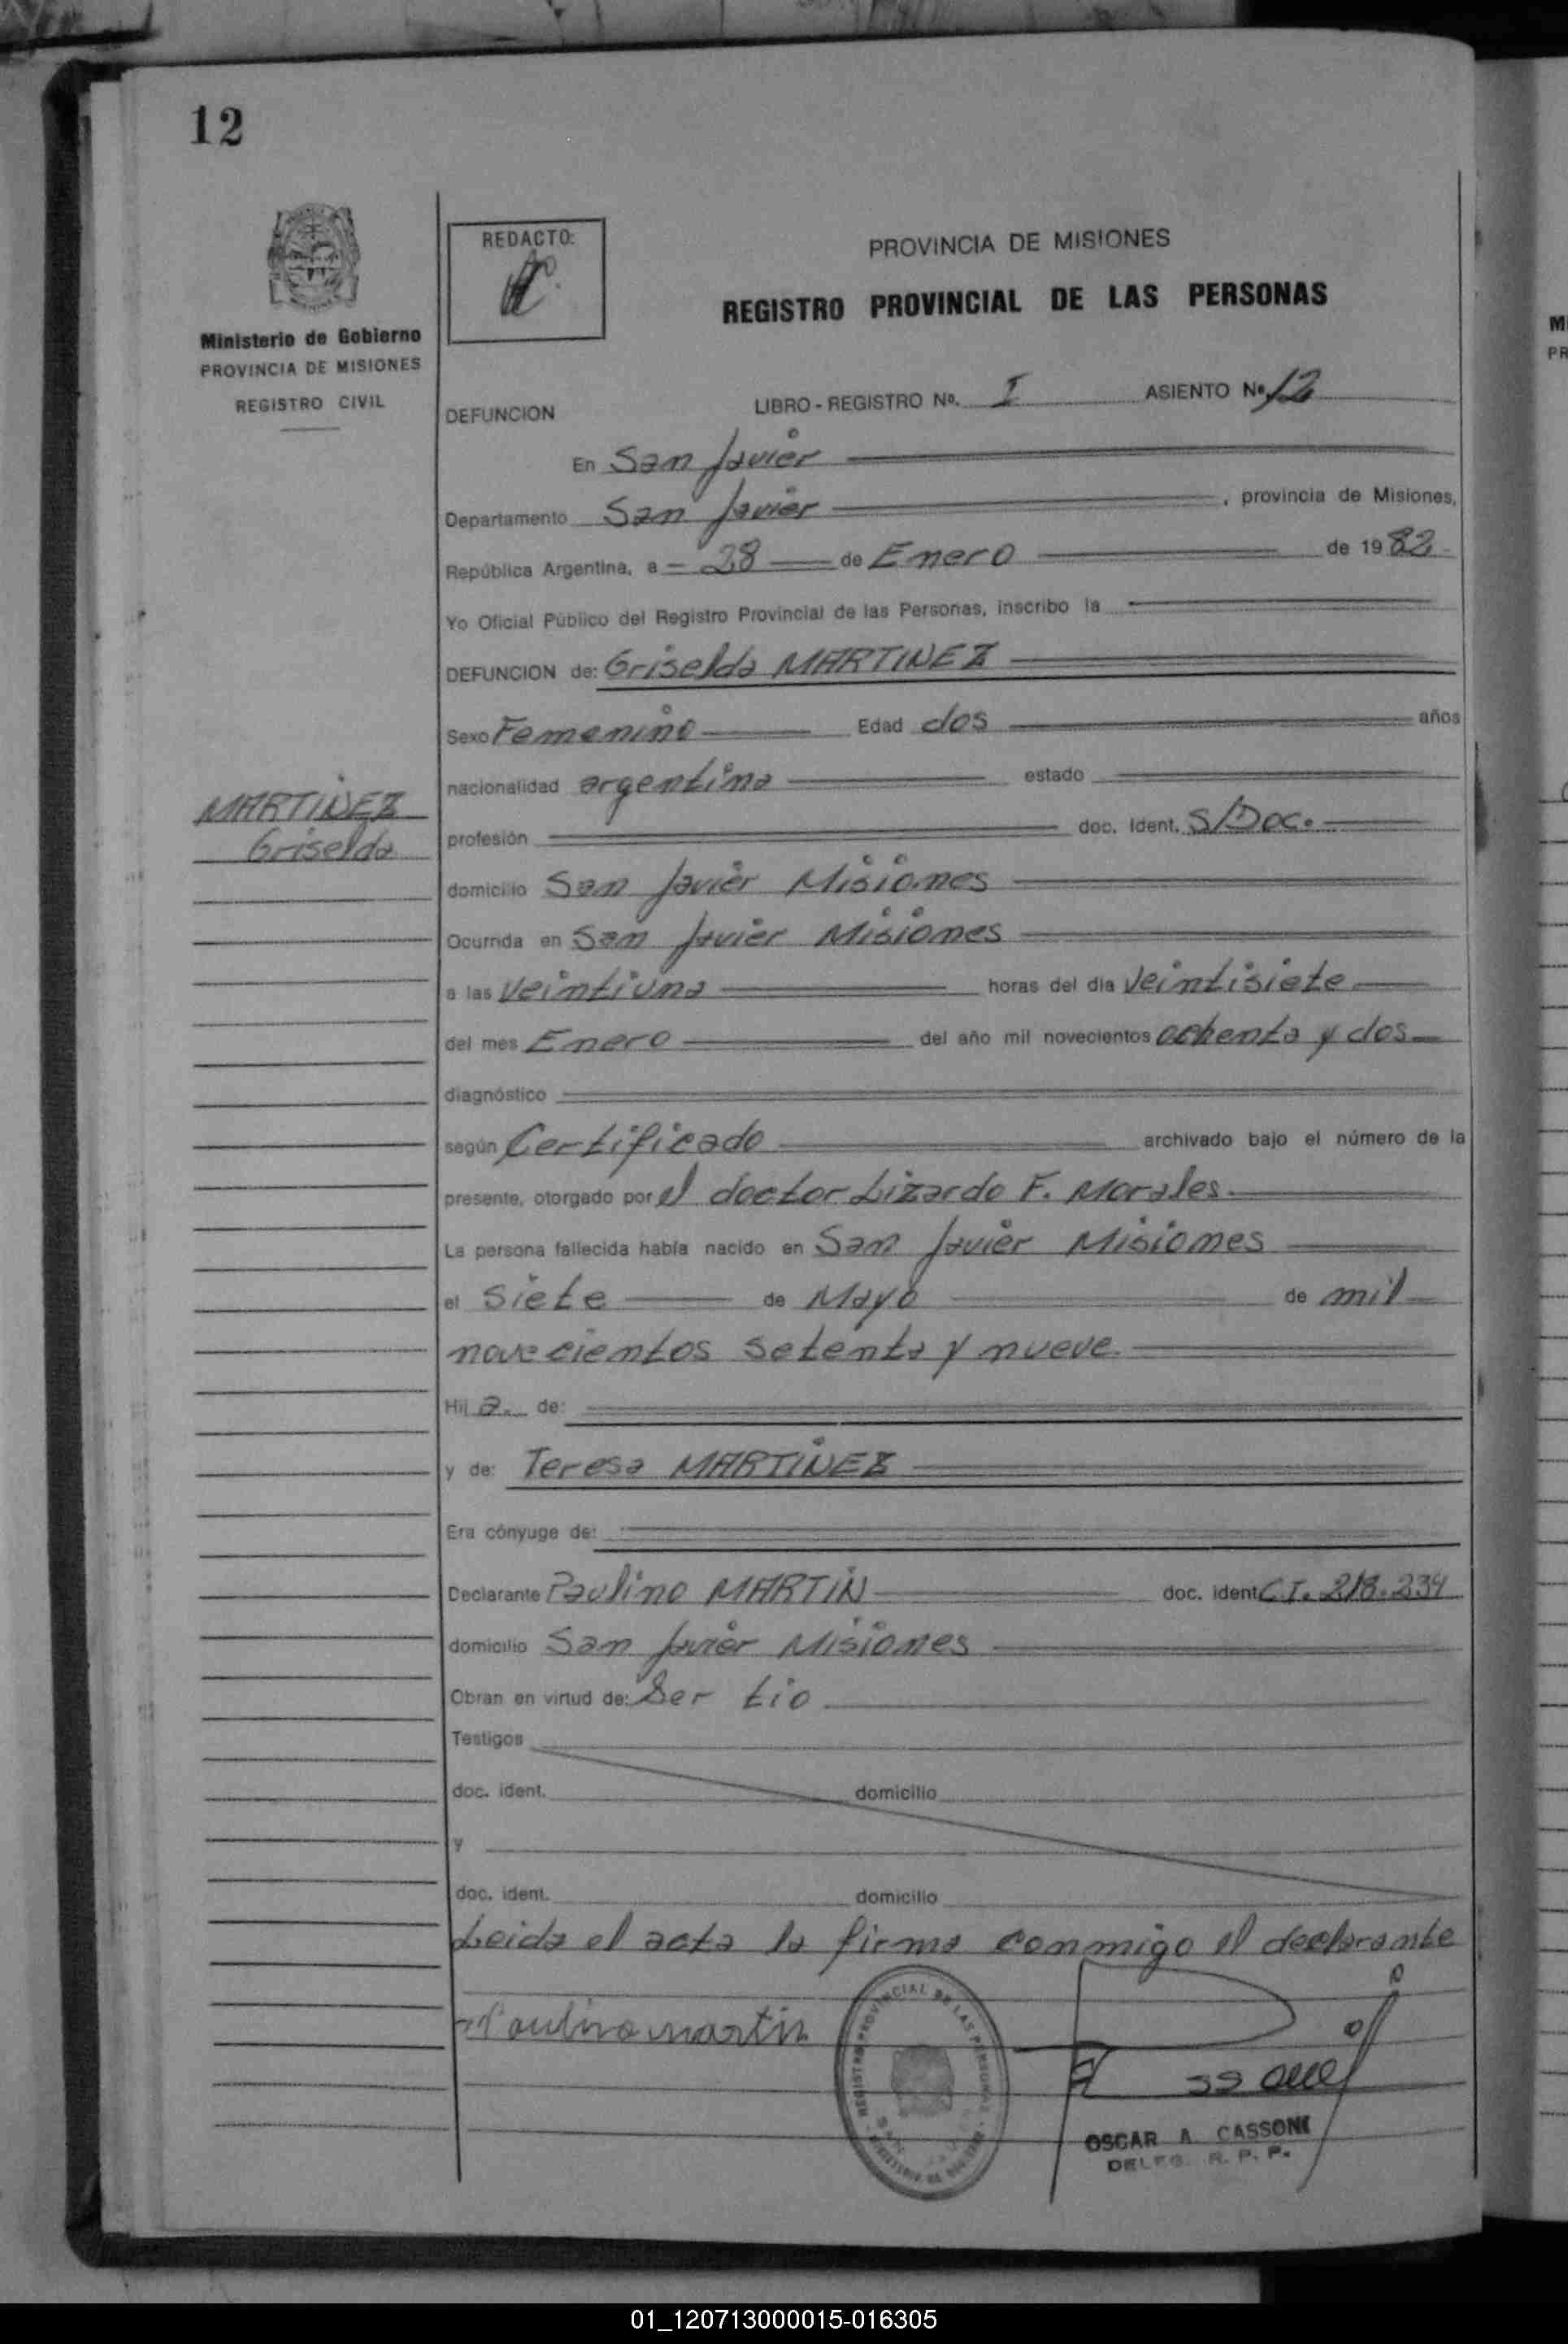 12
Ministerio de Gobierno
PROVINCIA DE MISIONES
REGISTRO CIVIL
MARTINEZ
Griselda
REDACTO:
PROVINCIA DE MISIONES
REGISTRO PROVINCIAL DE LAS PERSONAS
DEFUNCION LIBRO - REGISTRO Nº. I ASIENTO Nº 12
En San Javier
Departamento San Javier , provincia de Misiones,
República Argentina, a 28 de Enero de 1982
Yo Oficial Público del Registro Provincial de las Personas, inscribo la
DEFUNCION de: Griselda MARTINEZ
Sexo Femenino Edad dos años
nacionalidad argentina estado
profesión doc. Ident. S/Doc.
domicilio San Javier Misiones
Ocurrida en San Javier Misiones
a las veintiuna horas del día veintisiete
del mes Enero del año mil novecientos ochenta y dos
diagnóstico
según Certificado archivado bajo el número de la
presente, otorgado por el doctor Lizardo F. Morales.
La persona fallecida había nacido en San Javier Misiones
el siete de Mayo de mil
novecientos setenta y nueve.
Hij a. de:
y de: Teresa MARTINEZ
Era cónyuge de:
Declarante Paulino MARTIN doc. ident C.I. 218.234
domicilio San Javier Misiones
Obran en virtud de: Ser tio
Testigos
doc. ident. domicilio
y
doc. ident. domicilio
Leida el acta la firma conmigo el declarante
Paulino martin
REGISTRO PROVINCIAL DE LAS PERSONAS
OSCAR A CASSONI
DELEG. R. P. P.
01_120713000015-016305